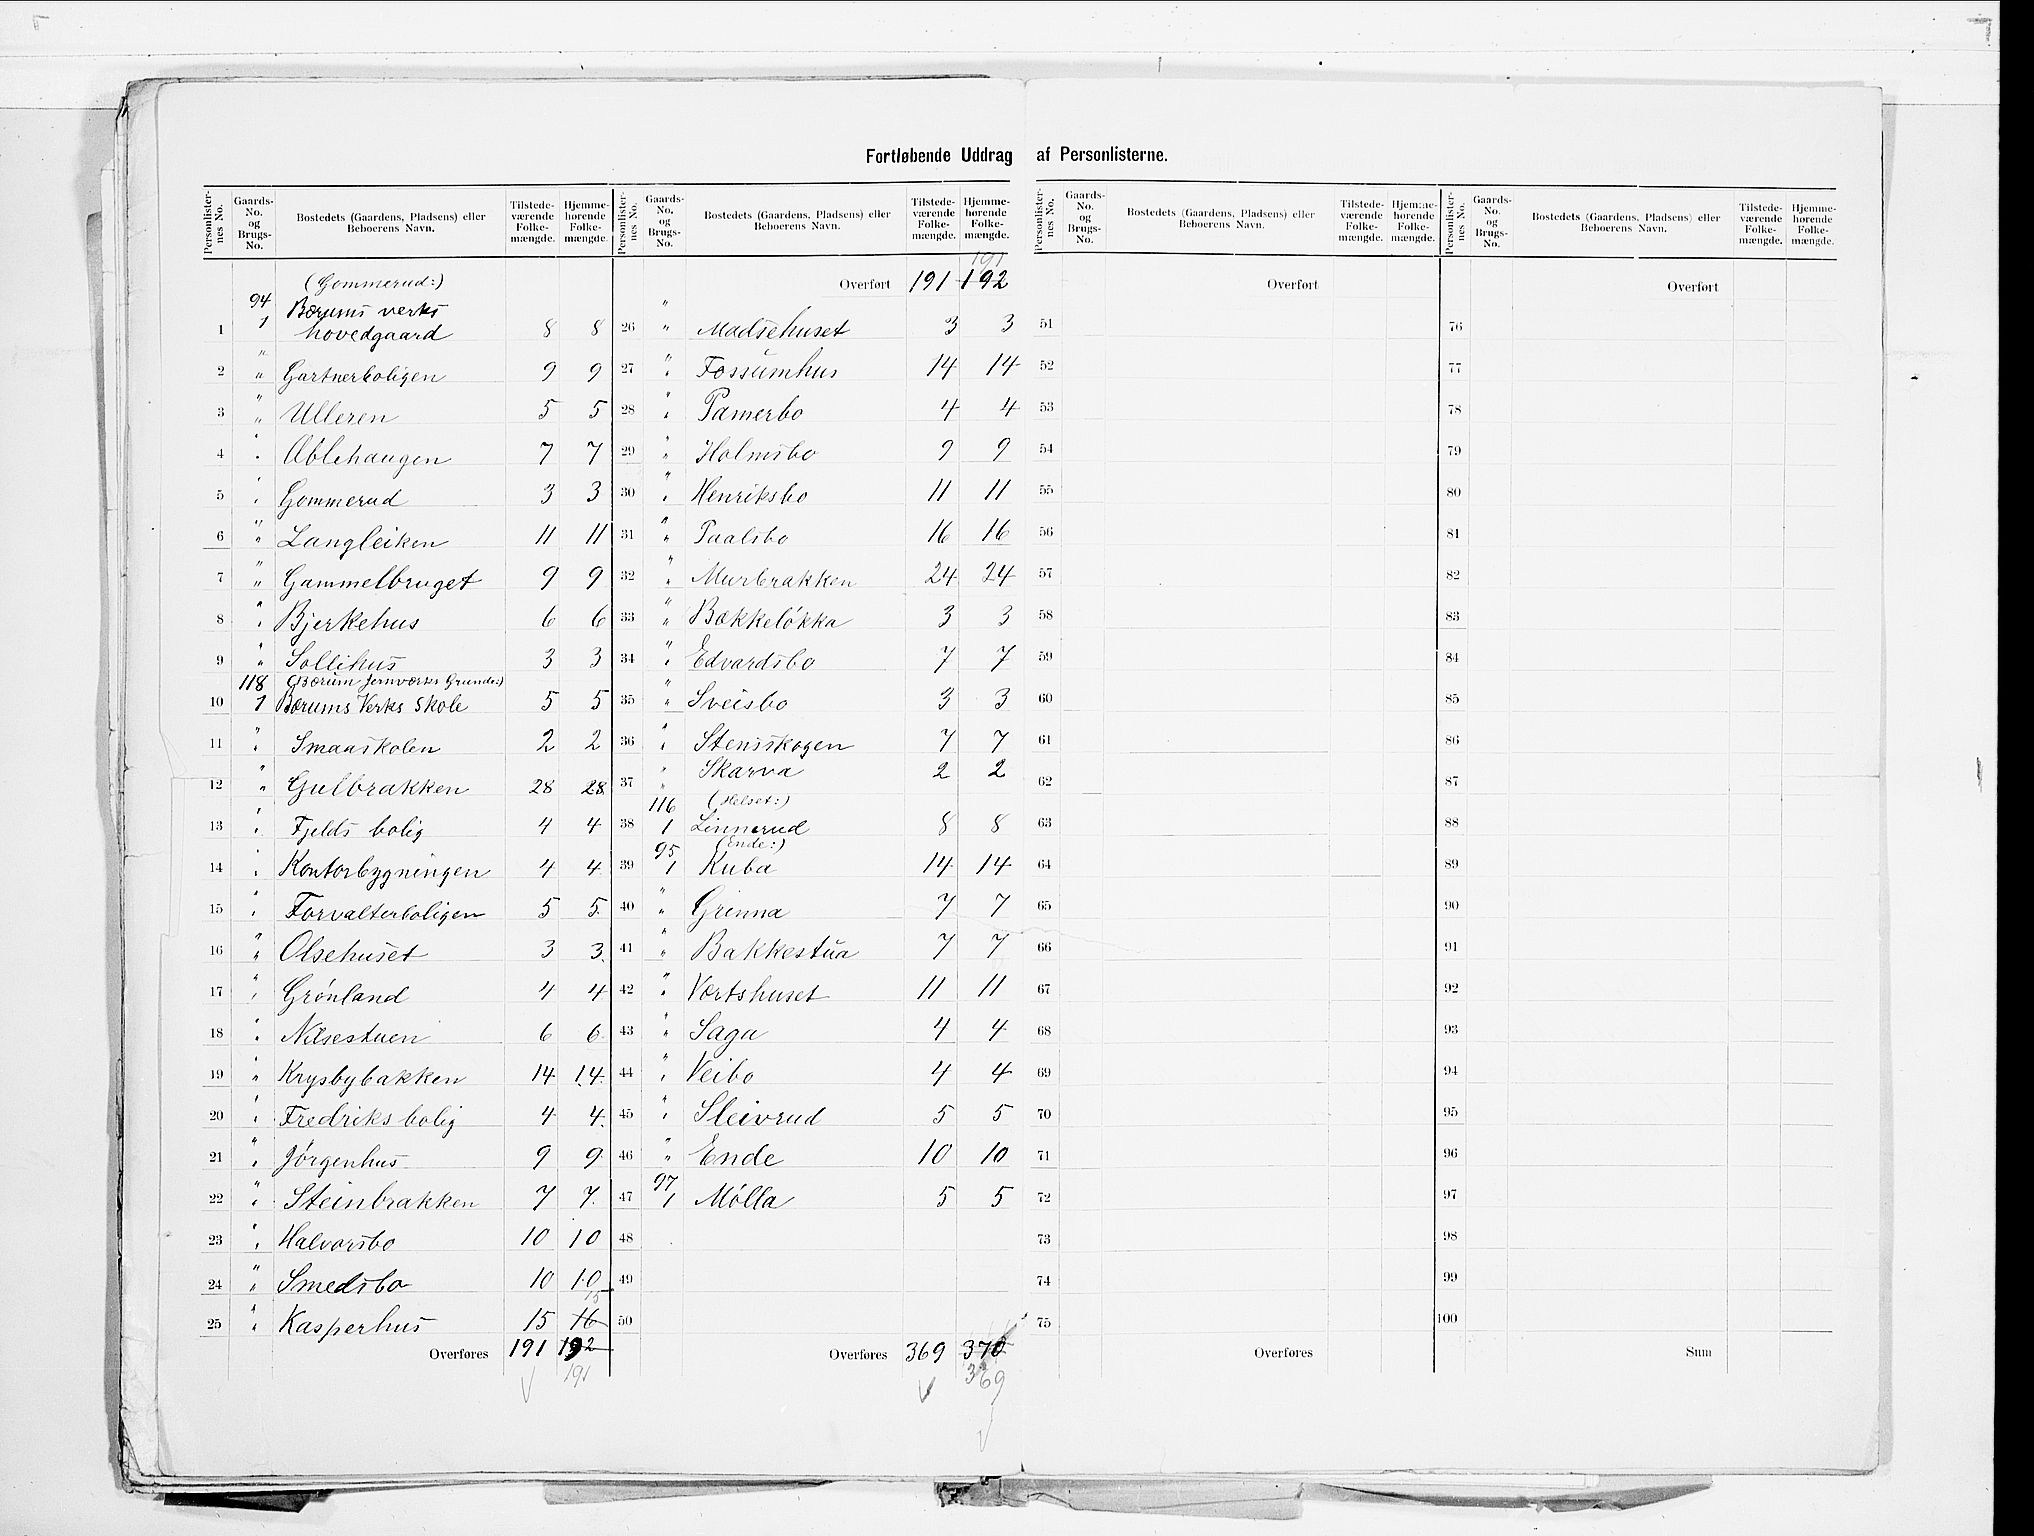 Fortløbende Uddrag af Personlisterne.
Personlister-nes No. Gaards-No. og Brugs-No. Bostedets (Gaardens, Pladsens) eller Beboerens Navn. Tilstede-værende Folke-mængde. Hjemme-hørende Folke-mængde.
(Gommerud:)
94
1 1 Bærums verks hovedgaard 8 8
2 " Gartnerboligen 9 9
3 " Ulleren 5 5
4 " Ablehaugen 7 7
5 " Gommerud 3 3
6 " Langleiken 11 11
7 " Gammelbruget 9 9
8 " Bjerkehus 6 6
9 " Sollihus 3 3
118 (Bærum Jernværks Grunde:)
10 1 Bærums Verks Skole 5 5
11 " Smaaskolen 2 2
12 " Gulbrakken 28 28
13 " Fjelds bolig 4 4
14 " Kontorbygningen 4 4
15 " Forvalterboligen 5 5
16 " Olsehuset 3 3
17 " Grønland 4 4
18 " Nilsestuen 6 6
19 " Krysbybakken 14 14
20 " Fredriks bolig 4 4
21 " Jørgenhus 9 9
22 " Steinbrakken 7 7
23 " Halvorsbo 10 10
24 " Smedsbo 10 10
15
25 " Kasperhus 15 16
Overføres 191 192
191
Personlister-nes No. Gaards-No. og Brugs-No. Bostedets (Gaardens, Pladsens) eller Beboerens Navn. Tilstede-værende Folke-mængde. Hjemme-hørende Folke-mængde.
191
Overført 191 192
26 " Madsehuset 3 3
27 " Fossumhus 14 14
28 " Pamerbo 4 4
29 " Holmsbo 9 9
30 " Henriksbo 11 11
31 " Paalsbo 16 16
32 " Murbrakken 24 24
33 " Bakkeløkka 3 3
34 " Edvardsbo 7 7
35 " Sveisbo 3 3
36 " Stensskogen 7 7
37 " Skarva 2 2
116 (Helset:)
38 1 Linnerud 8 8
95 (Ende:)
39 1 Kuba 14 14
40 " Grinna 7 7
41 " Bakkestua 7 7
42 " Vertshuset 11 11
43 " Saga 4 4
44 " Veibo 4 4
45 " Sleivrud 5 5
46 " Ende 10 10
97
47 1 Mølla 5 5
48
49
50
Overføres 369 370
369
Personlister-nes No. Gaards-No. og Brugs-No. Bostedets (Gaardens, Pladsens) eller Beboerens Navn. Tilstede-værende Folke-mængde. Hjemme-hørende Folke-mængde.
Overført
51
52
53
54
55
56
57
58
59
60
61
62
63
64
65
66
67
68
69
70
71
72
73
74
75
Overføres
Personlister-nes No. Gaards-No. og Brugs-No. Bostedets (Gaardens, Pladsens) eller Beboerens Navn. Tilstede-værende Folke-mængde. Hjemme-hørende Folke-mængde.
Overført
76
77
78
79
80
81
82
83
84
85
86
87
88
89
90
91
92
93
94
95
96
97
98
99
100
Sum